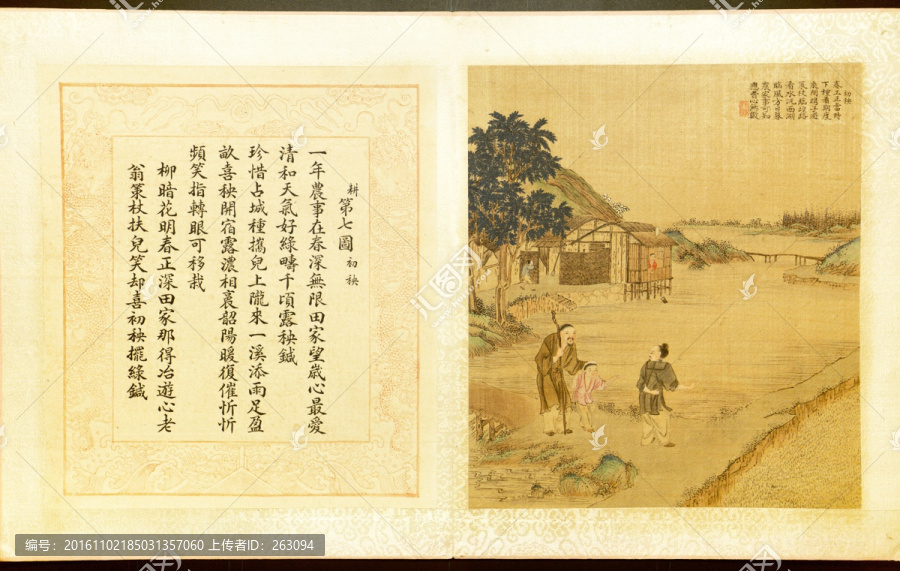 耕 第七圖 初秧
一年農事在春深無限田家望歲心最愛
清和天氣好綠疇千頃露秧鍼
珍惜占城種攜兒上隴來一溪添雨足盈
畝喜秧開宿露濃相裛韶陽暖復催忻忻
頻笑指轉眼可移栽
柳暗花明春正深田家那得冶遊心老
翁策杖扶兒笑却喜初秧擺綠鍼
初秧
汇图网
编号：20161102185031357060 上传者ID：263094